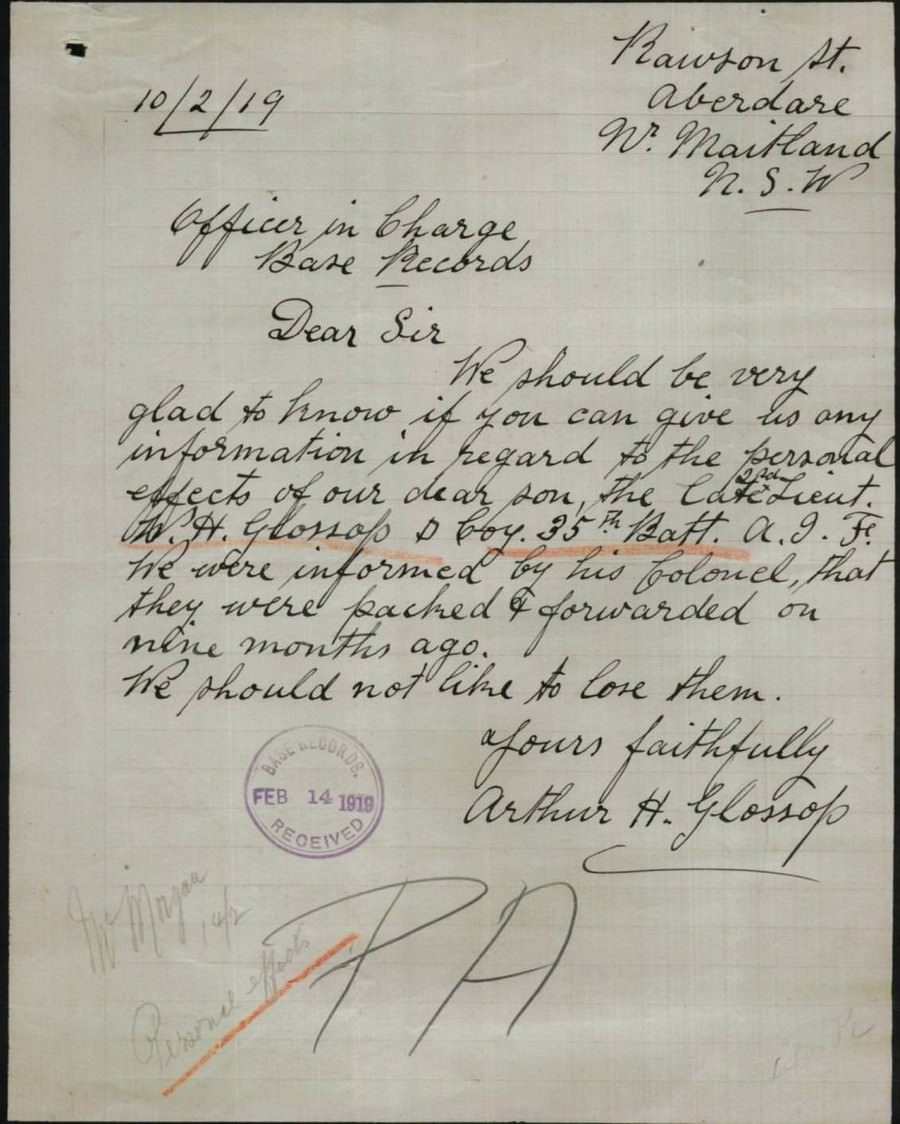 10/2/19
Rawson St.
Aberdare
Wr. Maitland
N. S. W
Officer in Charge
Base Records
Dear Sir
We should be very
glad to know if you can give us any
information in regard to the personal
effects of our dear son, the late 2nd Lieut.
W. H. Glossop D Coy. 35th Batt. A. I. F.
We were informed by his Colonel, that
they were packed & forwarded on
nine months ago.
We should not like to lose them.
Yours faithfully
Arthur H. Glossop
BASE RECORDS.
FEB 14 1919
RECEIVED
Mr Morgan
14/2
Personal effects
PA